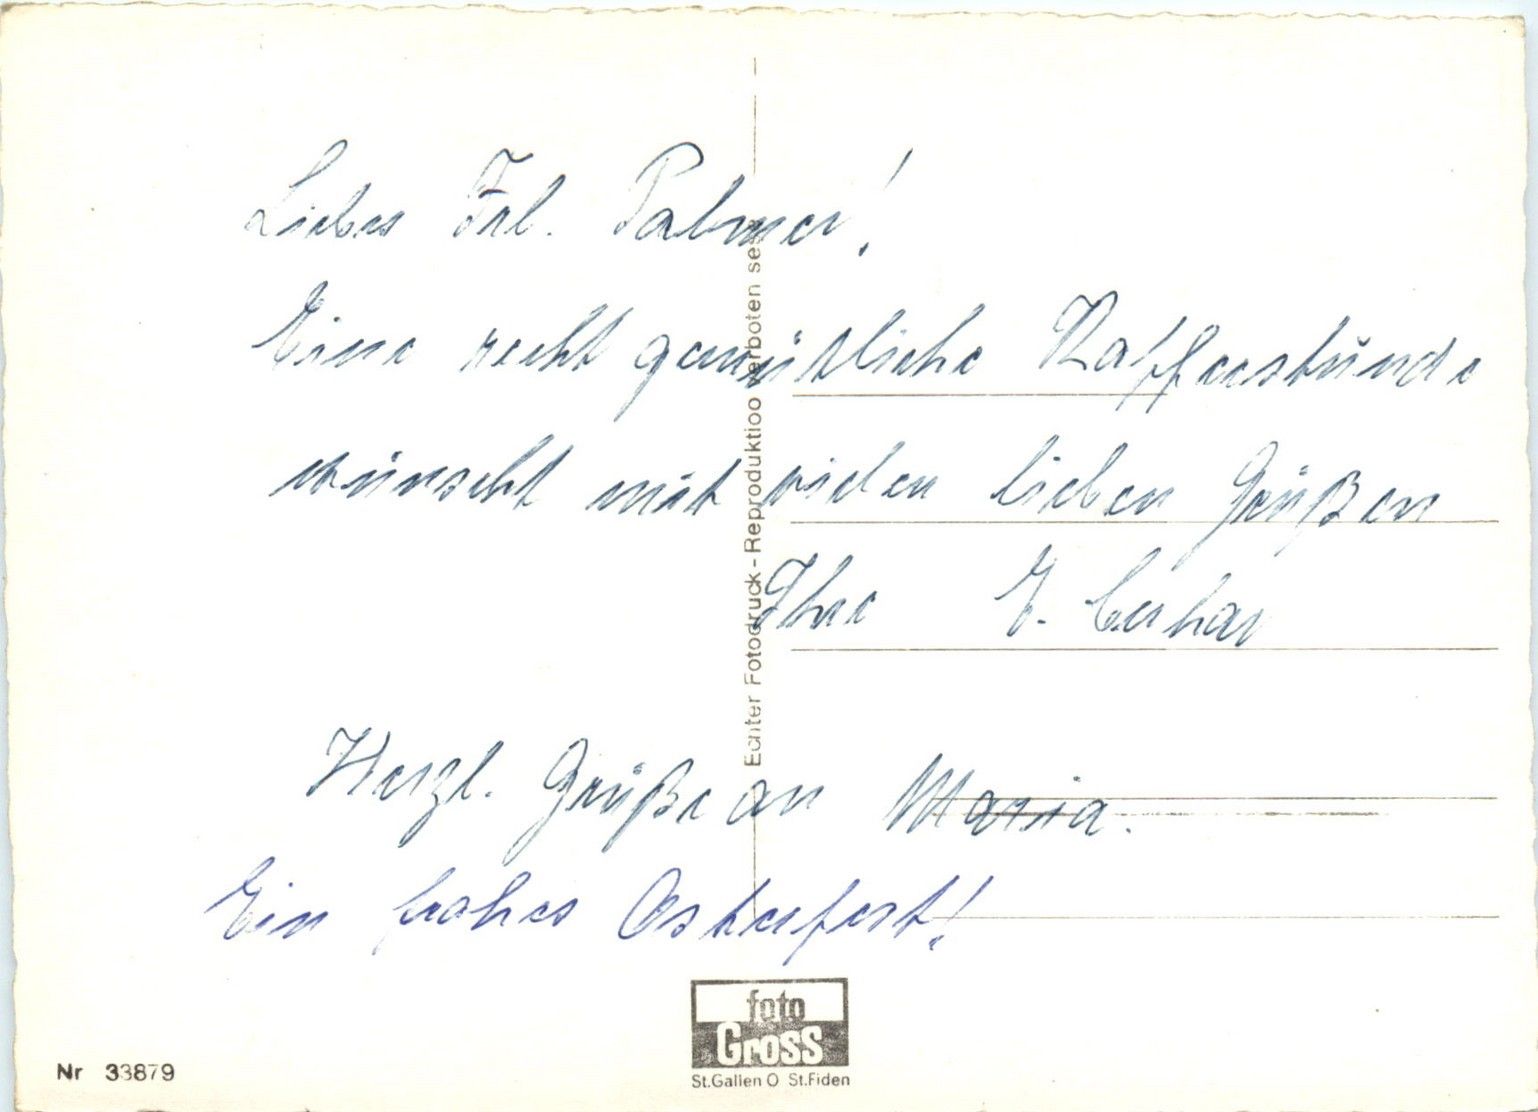 Liebes Frl. Palmer!
Eine recht gemütliche Kaffeestunde
wünscht mit vielen lieben Grüßen
Ihre E.
Herzl. Grüße an Maria.
Ein frohes Osterfest!
Echter Fotodruck - Reproduktion verboten
foto
Gross
St.Gallen O St.Fiden
Nr 33879